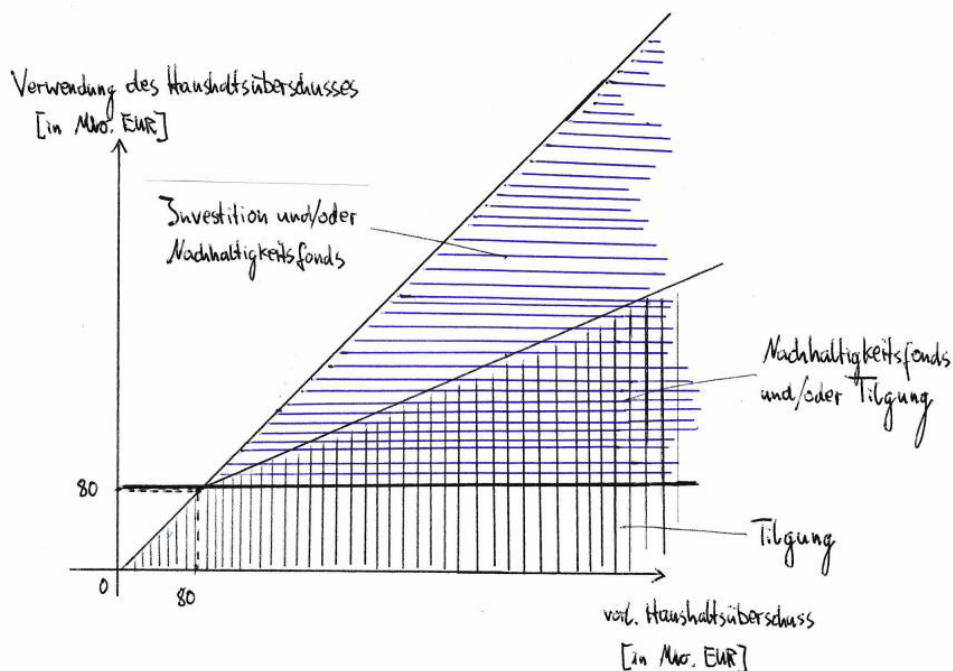 Verwendung des Haushaltsüberschusses
[in Mio. EUR]
Investition und/oder
Nachhaltigkeitsfonds
Nachhaltigkeitsfonds
und/oder Tilgung
80
Tilgung
0
80
vorl. Haushaltsüberschuss
[in Mio. EUR]